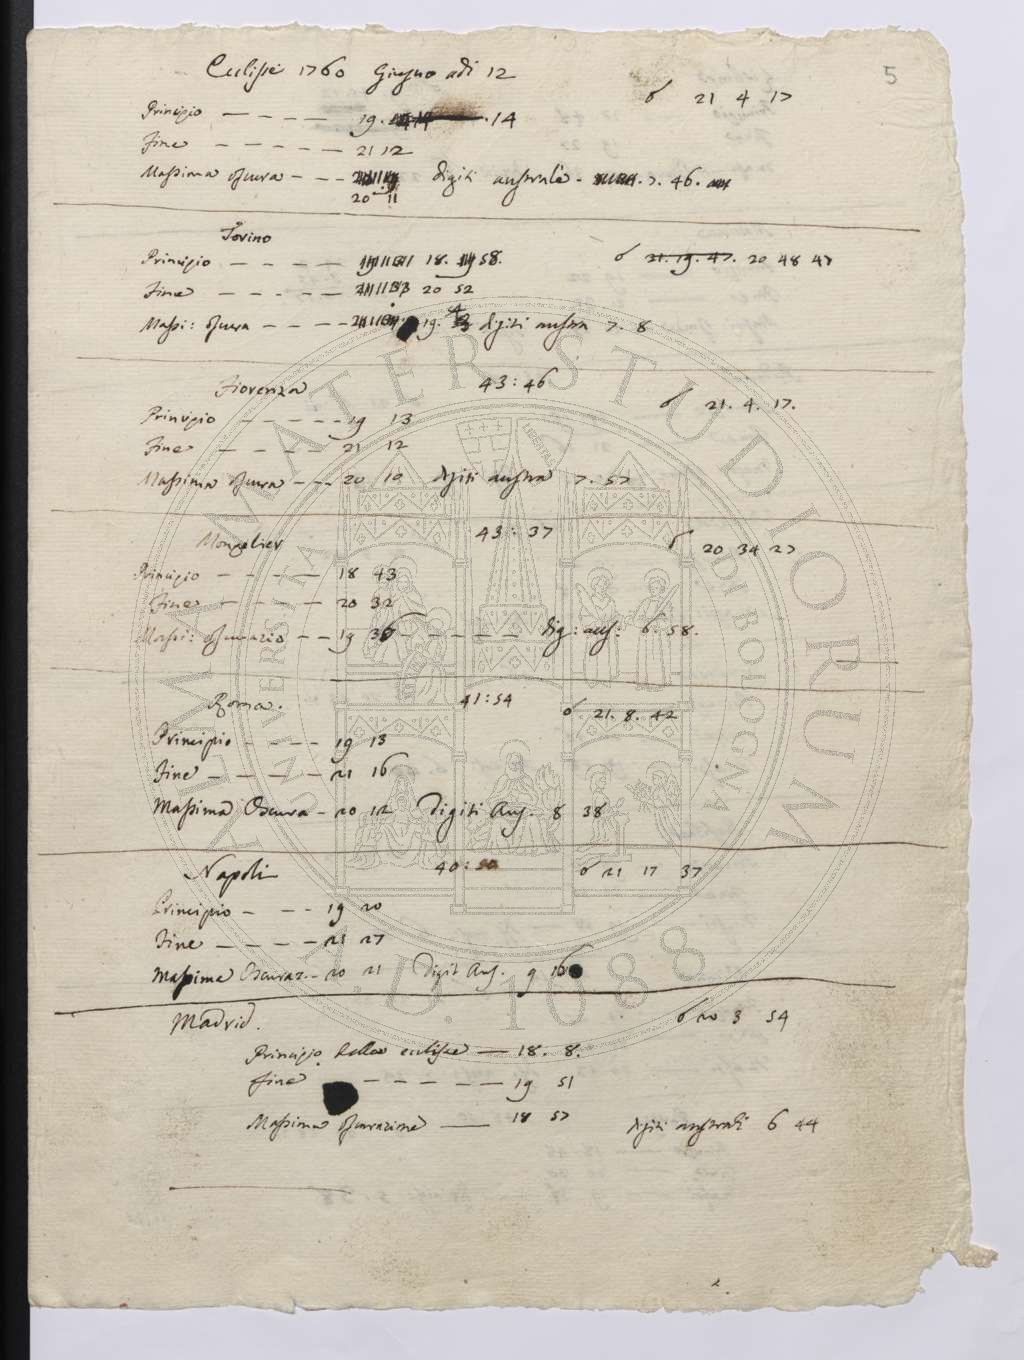 5
Eclisse 1760 Giugno adi 12
☌ 21 4 17
Principio - - - - 19. 14
Fine - - - - - 21 12
Massima oscura - - - 20 11 digiti australi - 7. 46.
Torino
Principio - - - - 18. 58. ☌ 21. 19. 47. 20 48 47
Fine - - - - - 20 52
Massi: oscura - - - - 19. digiti austra 7. 8
Fiorenza 43:46 ☌ 21. 4. 17.
Principio - - - - - 19 13
Fine - - - - 21 12
Massima oscura - - - 20 10 digiti austra 7. 57
Monpelier 43:37 ☌ 20 34 27
Principio - - - - 18 43
Fine - - - - - 20 32
Massi: oscurazio - - 19 36 - - - - - dig: aus: 6. 58.
Roma. 41:54 ☌ 21. 8. 42
Principio - - - - 19 13
Fine - - - - - 21 16
Massima Oscura - 20 12 Digiti Aus. 8 38
Napoli 40:50 ☌ 21 17 37
Principio - - - 19 20
Fine - - - - 21 27
Massima Oscuraz. - - 20 21 Digit Aus. 9 16
Madrid. ☌ 20 3 54
Principio della eclisse — 18. 8.
Fine - - - - - - 19 51
Massima oscurazione — 18 57 digiti australi 6 44
ALMA MATER STUDIORUM
UNIVERSITÀ DI BOLOGNA
A.D. 1088
LIBERTAS